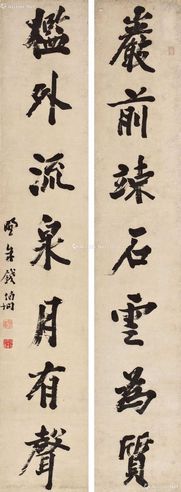 巖前疎石雲為質
檻外流泉月有聲
錢伯坰